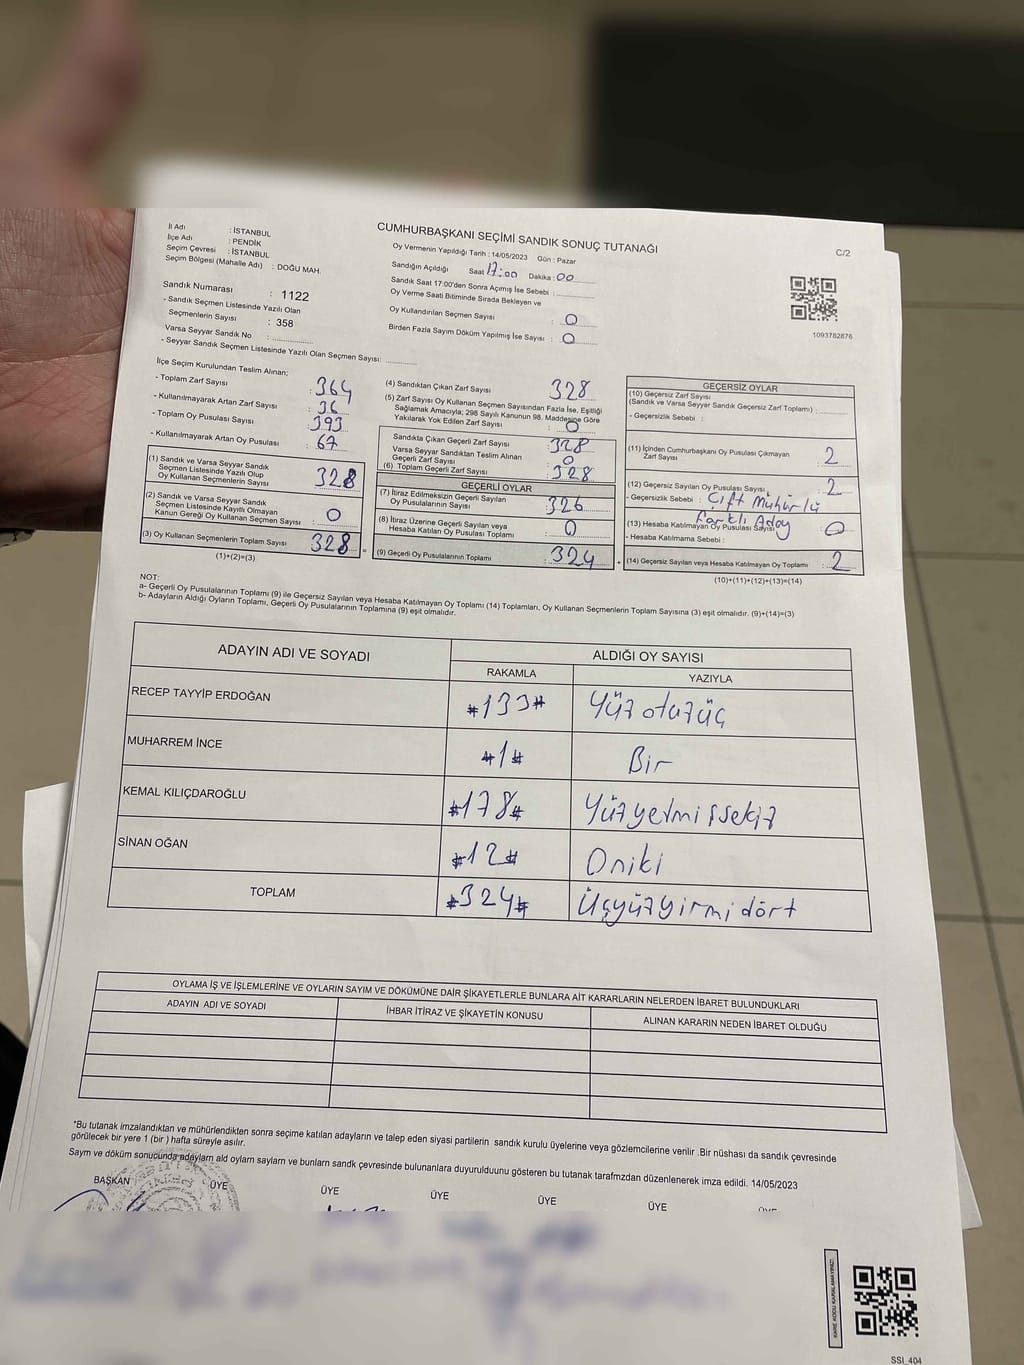 CUMHURBAŞKANI SEÇİMİ SANDIK SONUÇ TUTANAĞI
C/2
İl Adı : İSTANBUL
İlçe Adı : PENDİK
Seçim Çevresi : İSTANBUL
Seçim Bölgesi (Mahalle Adı) : DOĞU MAH.
Sandık Numarası : 1122
- Sandık Seçmen Listesinde Yazılı Olan
Seçmenlerin Sayısı : 358
Varsa Seyyar Sandık No :
- Seyyar Sandık Seçmen Listesinde Yazılı Olan Seçmen Sayısı:
Oy Vermenin Yapıldığı Tarih : 14/05/2023 Gün : Pazar
Sandığın Açıldığı Saat 17:00 Dakika : 00
Sandık Saat 17:00'den Sonra Açımış İse Sebebi :
Oy Verme Saati Bitiminde Sırada Bekleyen ve
Oy Kullandırılan Seçmen Sayısı : 0
Birden Fazla Sayım Döküm Yapılmış İse Sayısı : 0
1093782876
İlçe Seçim Kurulundan Teslim Alınan;
- Toplam Zarf Sayısı : 364
- Kullanılmayarak Artan Zarf Sayısı : 36
- Toplam Oy Pusulası Sayısı : 393
- Kullanılmayarak Artan Oy Pusulası : 67
(1) Sandık ve Varsa Seyyar Sandık
Seçmen Listesinde Yazılı Olup
Oy Kullanan Seçmenlerin Sayısı : 328
(2) Sandık ve Varsa Seyyar Sandık
Seçmen Listesinde Kayıtlı Olmayan
Kanun Gereği Oy Kullanan Seçmen Sayısı : 0
(3) Oy Kullanan Seçmenlerin Toplam Sayısı : 328
(1)+(2)=(3)
(4) Sandıktan Çıkan Zarf Sayısı : 328
(5) Zarf Sayısı Oy Kullanan Seçmen Sayısından Fazla İse, Eşitliği
Sağlamak Amacıyla; 298 Sayılı Kanunun 98. Maddesine Göre
Yakılarak Yok Edilen Zarf Sayısı : 0
Sandıkta Çıkan Geçerli Zarf Sayısı : 328
Varsa Seyyar Sandıktan Teslim Alınan
Geçerli Zarf Sayısı : 0
(6) Toplam Geçerli Zarf Sayısı : 328
GEÇERLİ OYLAR
(7) İtiraz Edilmeksizin Geçerli Sayılan
Oy Pusulalarının Sayısı : 326
(8) İtiraz Üzerine Geçerli Sayılan veya
Hesaba Katılan Oy Pusulası Toplamı : 0
= (9) Geçerli Oy Pusulalarının Toplamı : 324
GEÇERSİZ OYLAR
(10) Geçersiz Zarf Sayısı
(Sandık ve Varsa Seyyar Sandık Geçersiz Zarf Toplamı) :
- Geçersizlik Sebebi :
(11) İçinden Cumhurbaşkanı Oy Pusulası Çıkmayan
Zarf Sayısı : 2
(12) Geçersiz Sayılan Oy Pusulası Sayısı : 2
- Geçersizlik Sebebi : Çift Mühürlü
Farklı Aday
(13) Hesaba Katılmayan Oy Pusulası Sayısı : 0
- Hesaba Katılmama Sebebi :
+ (14) Geçersiz Sayılan veya Hesaba Katılmayan Oy Toplamı : 2
(10)+(11)+(12)+(13)=(14)
NOT:
a- Geçerli Oy Pusulalarının Toplamı (9) ile Geçersiz Sayılan veya Hesaba Katılmayan Oy Toplamı (14) Toplamları, Oy Kullanan Seçmenlerin Toplam Sayısına (3) eşit olmalıdır. (9)+(14)=(3)
b- Adayların Aldığı Oyların Toplamı, Geçerli Oy Pusulalarının Toplamına (9) eşit olmalıdır.
ADAYIN ADI VE SOYADI
ALDIĞI OY SAYISI
RAKAMLA YAZIYLA
RECEP TAYYİP ERDOĞAN #133# Yüzotuzüç
MUHARREM İNCE #1# Bir
KEMAL KILIÇDAROĞLU #178# Yüzyetmişsekiz
SİNAN OĞAN #12# Oniki
TOPLAM #324# Üçyüzyirmidört
OYLAMA İŞ VE İŞLEMLERİNE VE OYLARIN SAYIM VE DÖKÜMÜNE DAİR ŞİKAYETLERLE BUNLARA AİT KARARLARIN NELERDEN İBARET BULUNDUKLARI
ADAYIN ADI VE SOYADI İHBAR İTİRAZ VE ŞİKAYETİN KONUSU ALINAN KARARIN NEDEN İBARET OLDUĞU
*Bu tutanak imzalandıktan ve mühürlendikten sonra seçime katılan adayların ve talep eden siyasi partilerin sandık kurulu üyelerine veya gözlemcilerine verilir .Bir nüshası da sandık çevresinde
görülecek bir yere 1 (bir ) hafta süreyle asılır.
Saym ve döküm sonucunda adaylarn ald oylarn saylarn ve bunlarn sandk çevresinde bulunanlara duyurulduunu gösteren bu tutanak tarafmzdan düzenlenerek imza edildi. 14/05/2023
BAŞKAN ÜYE ÜYE ÜYE ÜYE ÜYE ÜYE
SSI_404